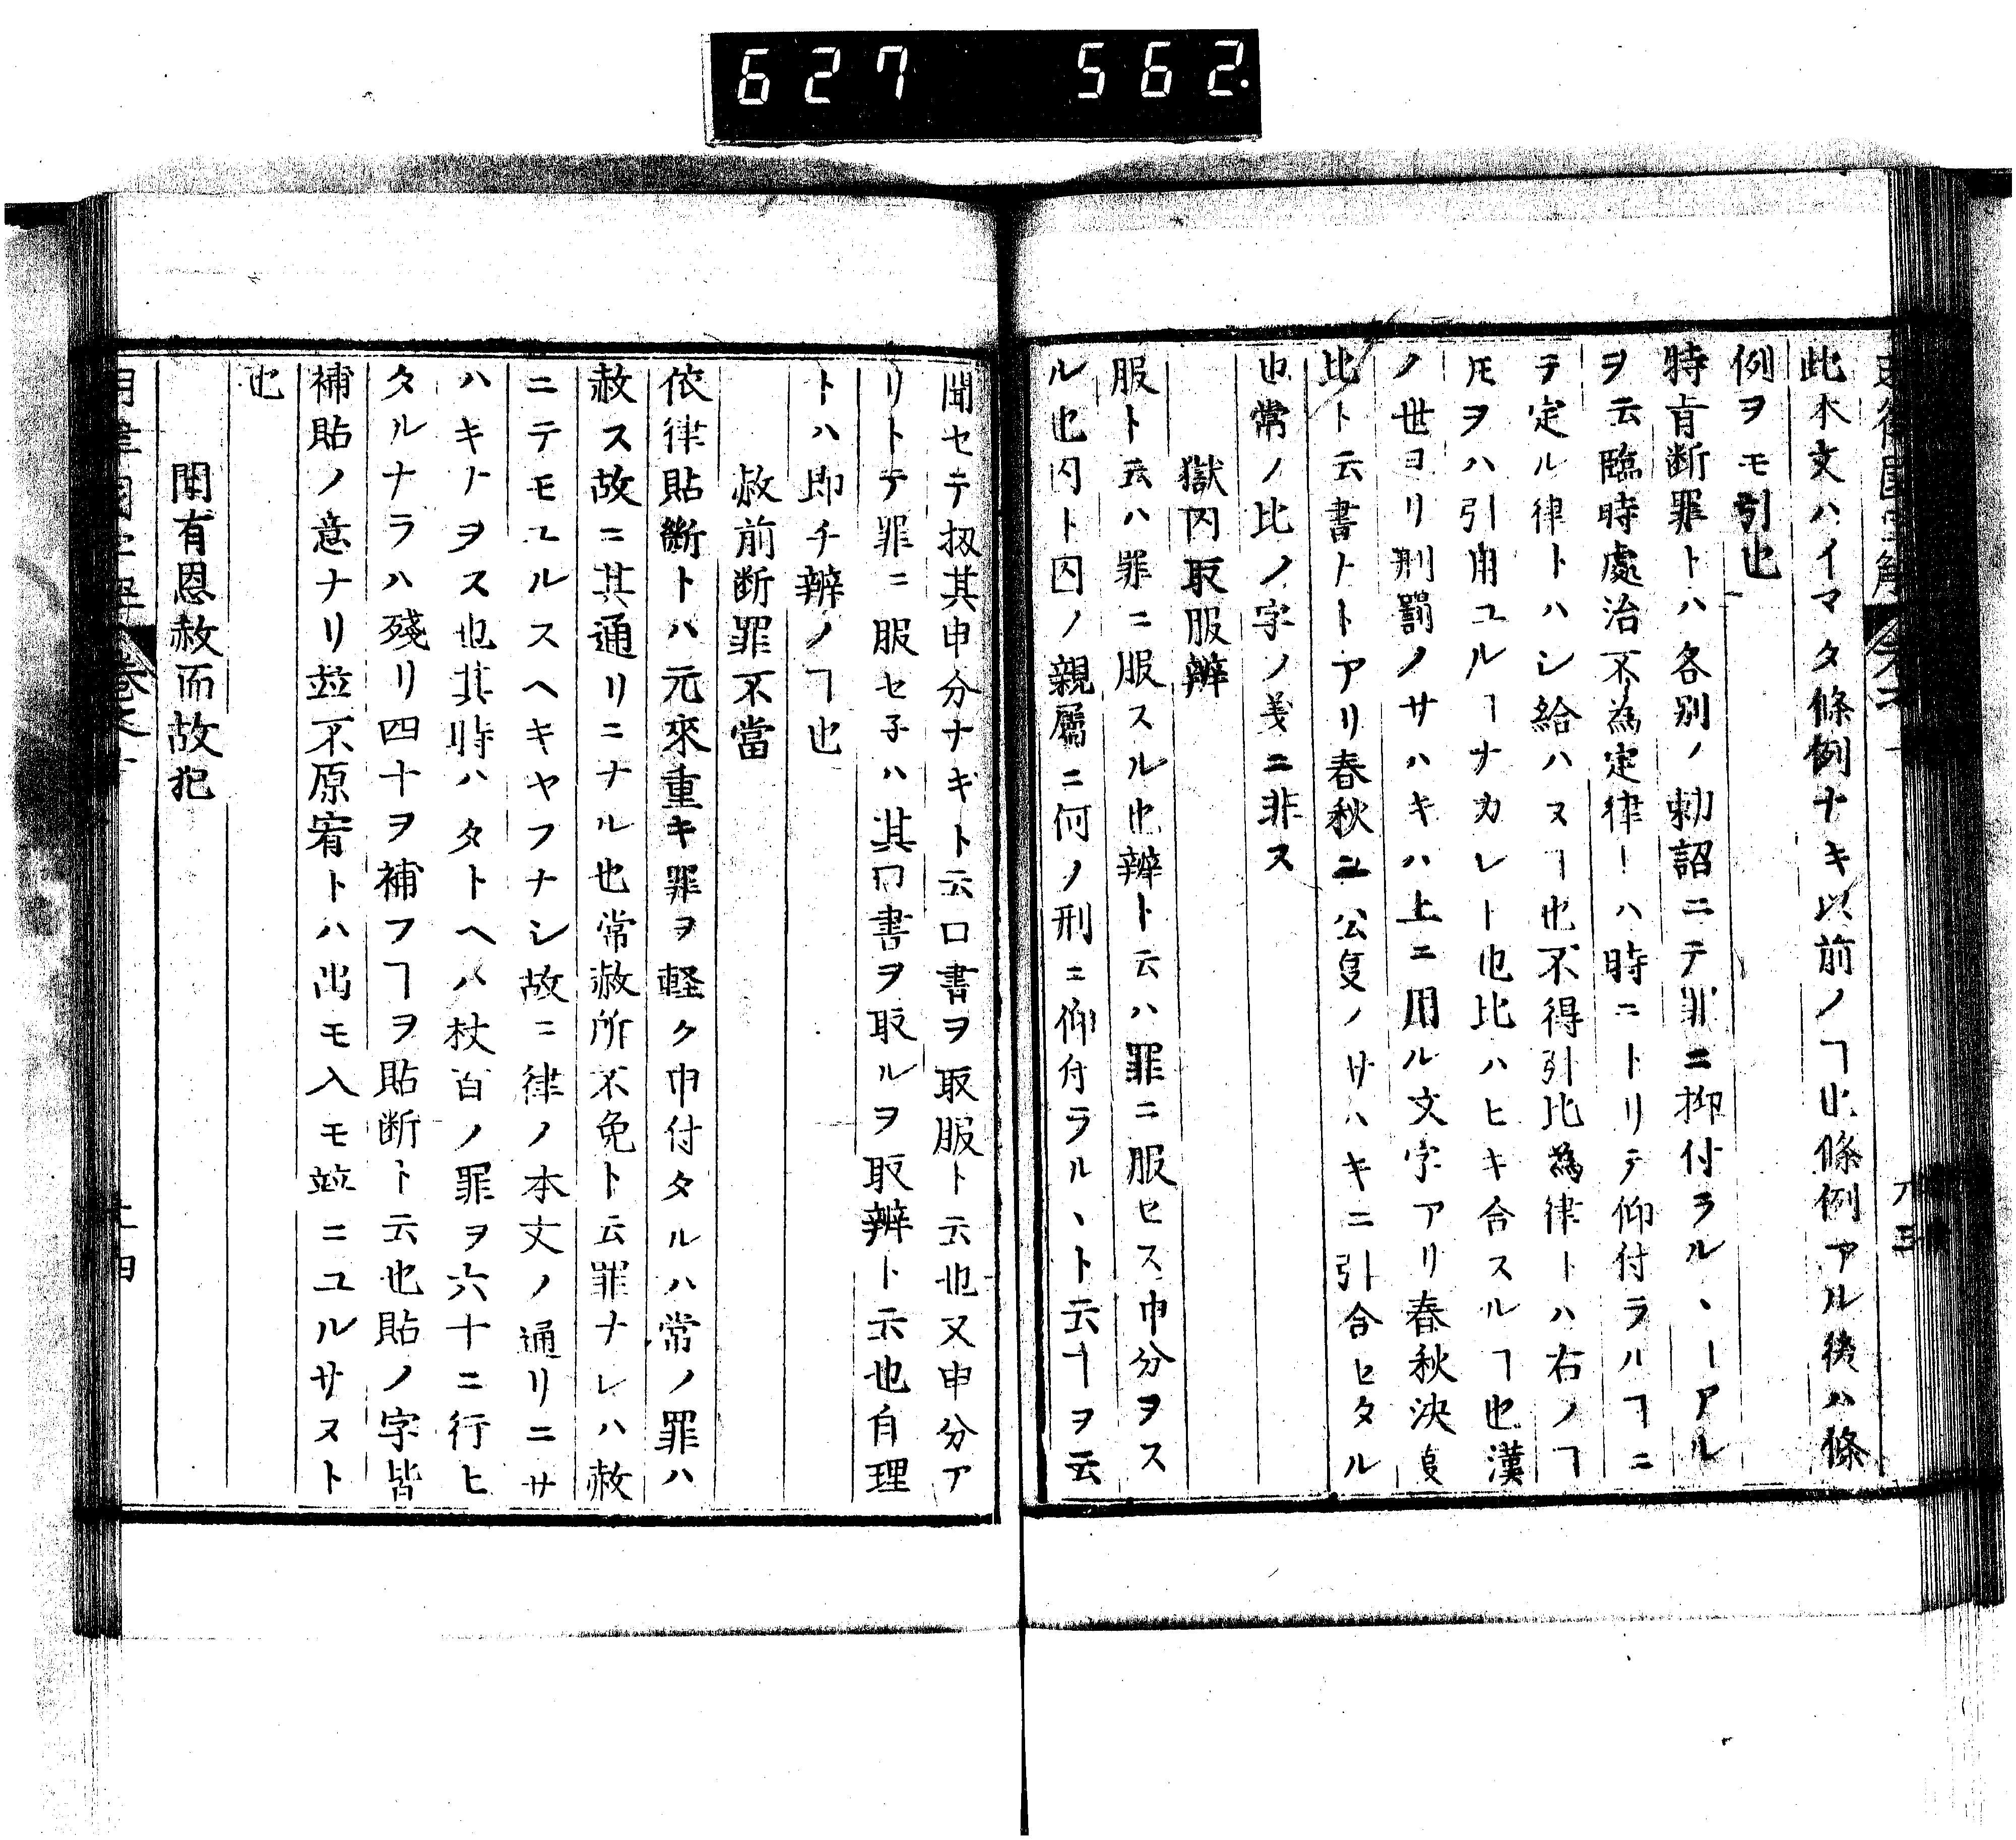 627 562.
此本文ハイマタ條例ナキ以前ノヿ也條例アル後ハ條
例ヲモ引也
特旨断罪トハ各別ノ勅詔ニテ罪ニ抑付ラルヽヿアル
ヲ云臨時處治不為定律トハ時ニトリテ仰付ラルヿニ
テ定ル律トハシ給ハヌヿ也不得引比為律トハ右ノヿ
𪜈ヲハ引用ユルヿナカレト也比ハヒキ合スルヿ也漢
ノ世ヨリ刑罰ノサハキハ上ニ用ル文字アリ春秋决㕝
比ト云書トトアリ春秋ニ公㕝ノサハキニ引合セタル
也常ノ比ノ字ノ義ニ非ス
獄囚取服辨
服ト云ハ罪ニ服スル也辨ト云ハ罪ニ服セス申分ヲス
ル也囚ト囚ノ親屬ニ何ノ刑ニ仰付ラルヽト云ヿヲ云
聞セテ扱其申分ナキト云口書ヲ取服ト云也又申分ア
リトテ罪ニ服セ子ハ其口書ヲ取ルヲ取辨ト云也自理
トハ即チ辨ノヿ也
赦前断罪不當
依律貼斷トハ元來重キ罪ヲ軽ク申付タルハ常ノ罪ハ
赦ス故ニ其通リニナル也常赦所不免ト云罪ナレハ赦
ニテモユルスヘキヤフナシ故ニ律ノ本文ノ通リニサ
ハキナヲス也其時ハタトヘハ杖百ノ罪ヲ六十ニ行ヒ
タルナラハ殘リ四十ヲ補フヿヲ貼断ト云也貼ノ字皆
補貼ノ意ナリ並不原宥トハ出モ入モ並ニユルサヌト
也
聞有恩赦而故犯